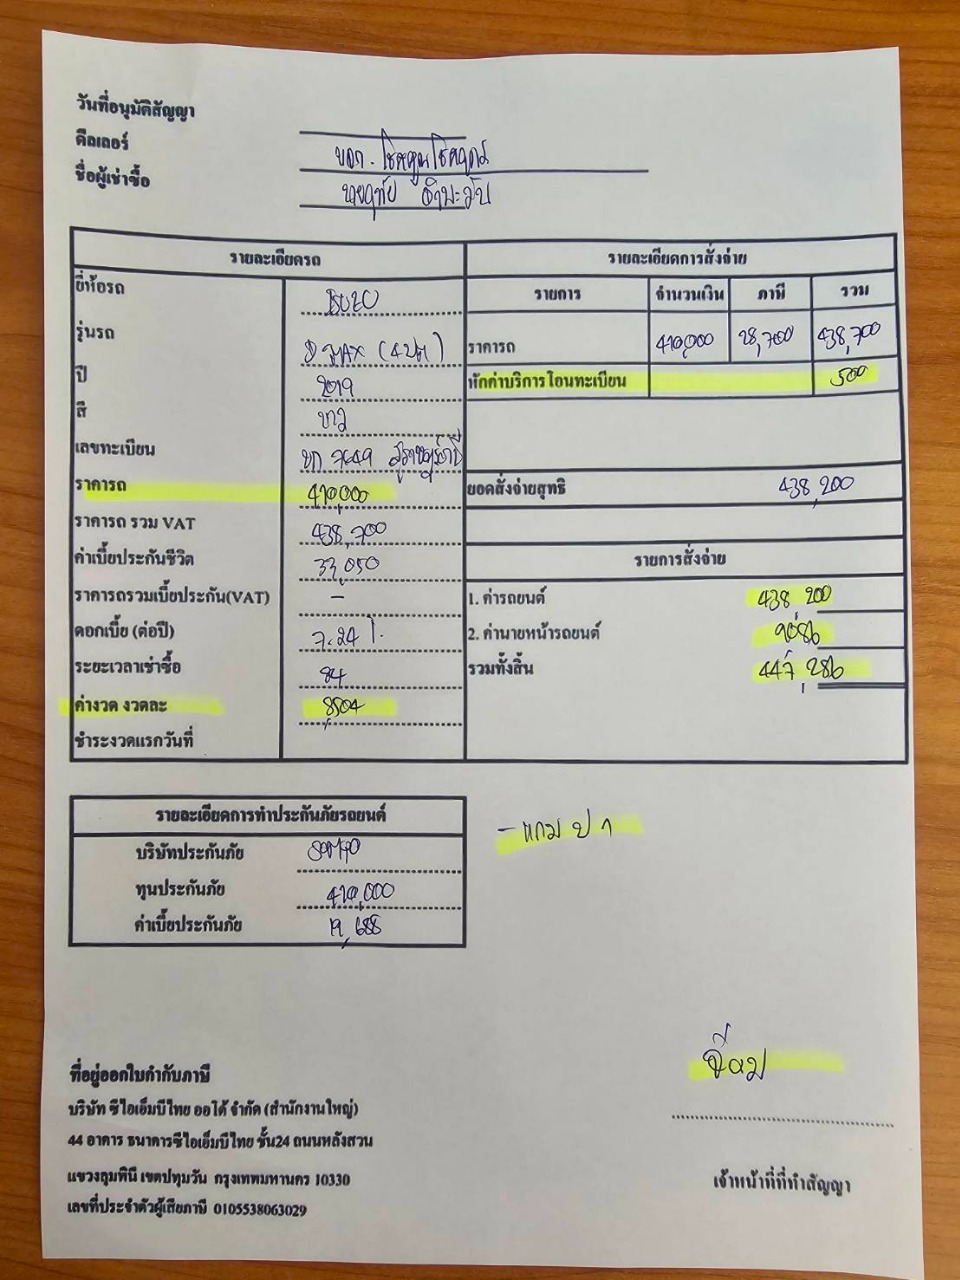 วันที่อนุมัติสัญญา
ดีลเลอร์ บจก. โชคคูณโชคถาวร
ชื่อผู้เช่าซื้อ นายฤทัย
รายละเอียดรถ
ยี่ห้อรถ ISUZU
รุ่นรถ D-MAX (4ปต)
ปี 2019
สี ขาว
เลขทะเบียน ขก 7649 สุราษฎร์ธานี
ราคารถ 410,000
ราคารถ รวม VAT 438,700
ค่าเบี้ยประกันชีวิต 33,050
ราคารถรวมเบี้ยประกัน(VAT) -
ดอกเบี้ย (ต่อปี) 7.24 %
ระยะเวลาเช่าซื้อ 84
ค่างวด งวดละ 8,504
ชำระงวดแรกวันที่
รายละเอียดการสั่งจ่าย
รายการ จำนวนเงิน ภาษี รวม
ราคารถ 410,000 28,700 438,700
หักค่าบริการโอนทะเบียน 500
ยอดสั่งจ่ายสุทธิ 438,200
รายการสั่งจ่าย
1. ค่ารถยนต์ 438,200
2. ค่านายหน้ารถยนต์ 9,086
รวมทั้งสิ้น 447,286
รายละเอียดการทำประกันภัยรถยนต์
บริษัทประกันภัย SOMPO
ทุนประกันภัย 410,000
ค่าเบี้ยประกันภัย 19,688
- แถม ป 1
ที่อยู่ออกใบกำกับภาษี
บริษัท ซีไอเอ็มบีไทย ออโต้ จำกัด (สำนักงานใหญ่)
44 อาคาร ธนาคารซีไอเอ็มบีไทย ชั้น24 ถนนหลังสวน
แขวงลุมพินี เขตปทุมวัน กรุงเทพมหานคร 10330
เลขที่ประจำตัวผู้เสียภาษี 0105538063029
เจ้าหน้าที่ที่ทำสัญญา